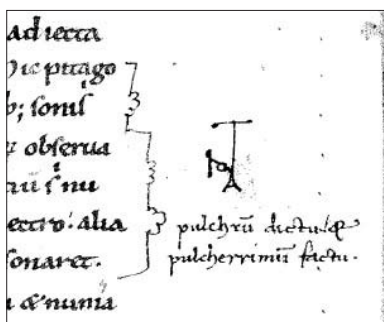 adiecta
hic pitago
b; sonis
& obserua
nu
alia
sonaret.
& numa
pulchrū dictu. &
pulcherrimū factu.